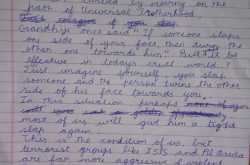 by moving on the
path of Universal Brotherhood.
Gandhiji once said "If someone slaps
one side of your face then turn the
other one towards him". But it be
effective in today's cruel world?
Just imagine yourself you slap
someone and the person turns the other
side of his face towards you,
In this situation, perhaps
most of us will give him a tight
slap again.
This is the condition of us, but
terrorist groups like ISIS and Al Qaeda
are far more aggressive & violent